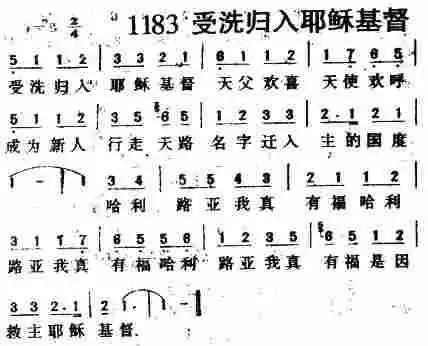 1183 受洗归入耶稣基督
2/4
5 1 1·2 | 3 3 2 1 | 6 1 1 2 | 1 7 6 5 |
受洗归入 耶稣基督 天父欢喜 天使欢呼
5 1 1 2 | 3 5 6 5 | 1 2 3 3 | 2·1 2 1 |
成为新人 行走天路 名字迁入 主的国度
1 – | 3 4 | 5 5 4 3 | 2 1 1 2 |
哈利 路亚我真 有福哈利
3 1 1 7 | 6 5 5 6 | 1 2 3 5 | 6 5 1 2 |
路亚我真 有福哈利 路亚我真 有福是因
3 3 2·1 | 2 1· | 1 – ‖
救主耶稣 基督.